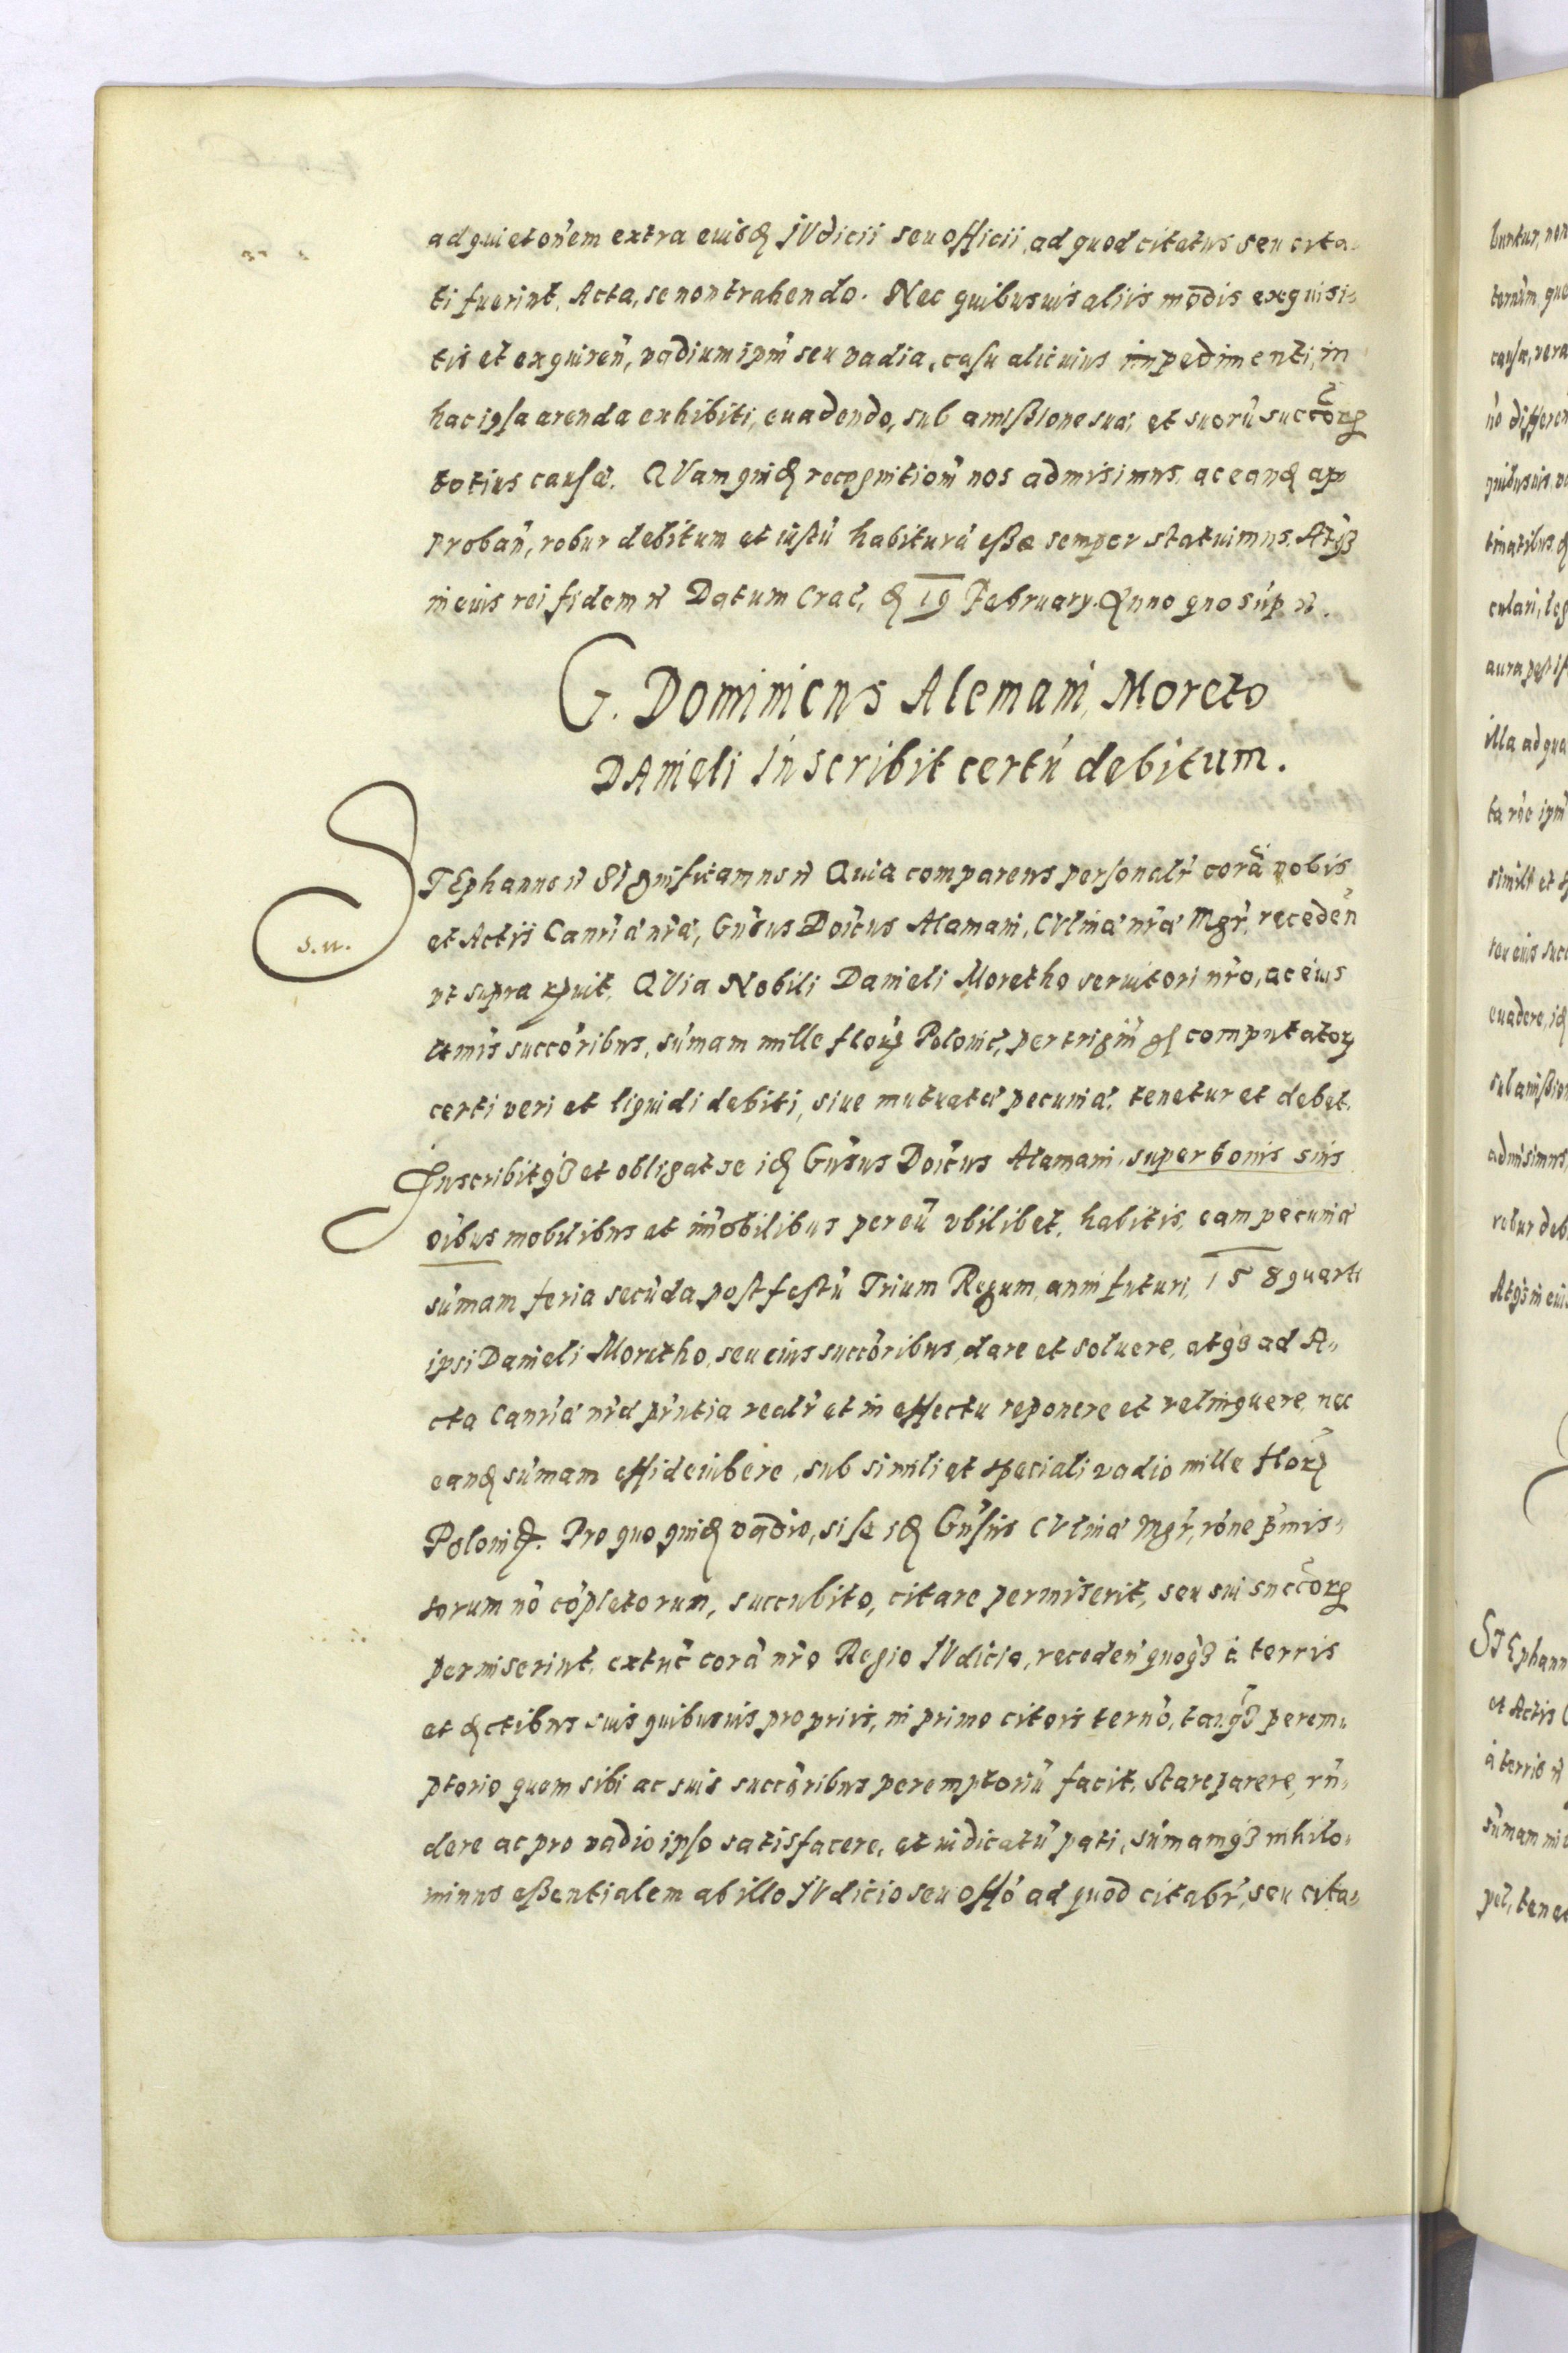 ad quietoñem extra euisđ IVdicii seu officii, ad quod citatus seu cita-
ti fuerint, Acta, se non trahendo. Nec quibusuis aliis modis exquisi-
tis et exquireñ, vadium ipm̃ seu vadia, casu alicuius impedimenti, in
hac ipsa arenda exhibiti, euadendo, sub amißione suæ et suorũ succõrꝝ
totius causæ. QVam quiđ recognitioñ nos admisimus, ac eanđ ap
probañ, robur debitum et iustũ habiturã eße semper statuimus. Atqꝫ
in euis rei fidem ꝛc Datum Crac̃, đ 19 February. Anno quo sup̃ ꝛc.
G. Dominicus Alemani, Moreto
DAnieli Inscribit certũ debitum.
STEphanus ꝛc SIgnificamus ꝛc Quia comparens personalr̃ corã nobis
et Actis Canr̃iæ nr̃æ, Gñsus Doĩcus Alamani, CVlinæ nr̃æ Mgr̃, recedeñ
s. n.
vt supra ꝛc, QVia Nobili Danieli Moretho seruitori nr̃o, ac eius
ltmis succõribus, sũmam mille florꝝ Polonic̃, per trigiñ gř computatorꝝ
certi veri et liquidi debiti, siue mutuatæ pecuniæ, tenetur et debet.
Inscribitqꝫ et obligat se iđ Gñsus Doĩcus Alamani, super bonis suis
oĩbus mobilibus et im̃obilibus per eũ vbilibet, habitis, eam pecuniæ
sũmam feria secũda post festũ Trium Regum, anni futuri, 158 quarti
ipsi Danieli Moretho, seu eius succõribus, dare et soluere, atqꝫ ad A-
cta Canr̃iæ nr̃æ pr̃ntia realr̃ et in effectu reponere et relinquere, nec
eanđ sũmam effideiubere, sub simili et speciali vadio mille florꝝ
Polonic̃. Pro quo quiđ vadio, si se iđ Gñsus CVlinæ Mgr̃, rõne p̃mis-
sorum nõ cõpletorum, succubito, citare permiserit, seu sui succõrꝝ
permiserint, extunc̃ corã nr̃o Regio IVdicio, recedeñ quoqꝫ à terris
et đctibus suis quibusuis propriis, in primo citõis ternõ, tanqꝫ perem-
ptorio quem sibi ac suis succõribus peremptoriũ facit, Stare parere, rñ-
dere ac pro vadio ipso satisfacere, et iudicatũ pati, sũmamqꝫ nihilo-
minus eßentialem ab illo IVdicio seu offõ ad quod citabr̃, seu cita-